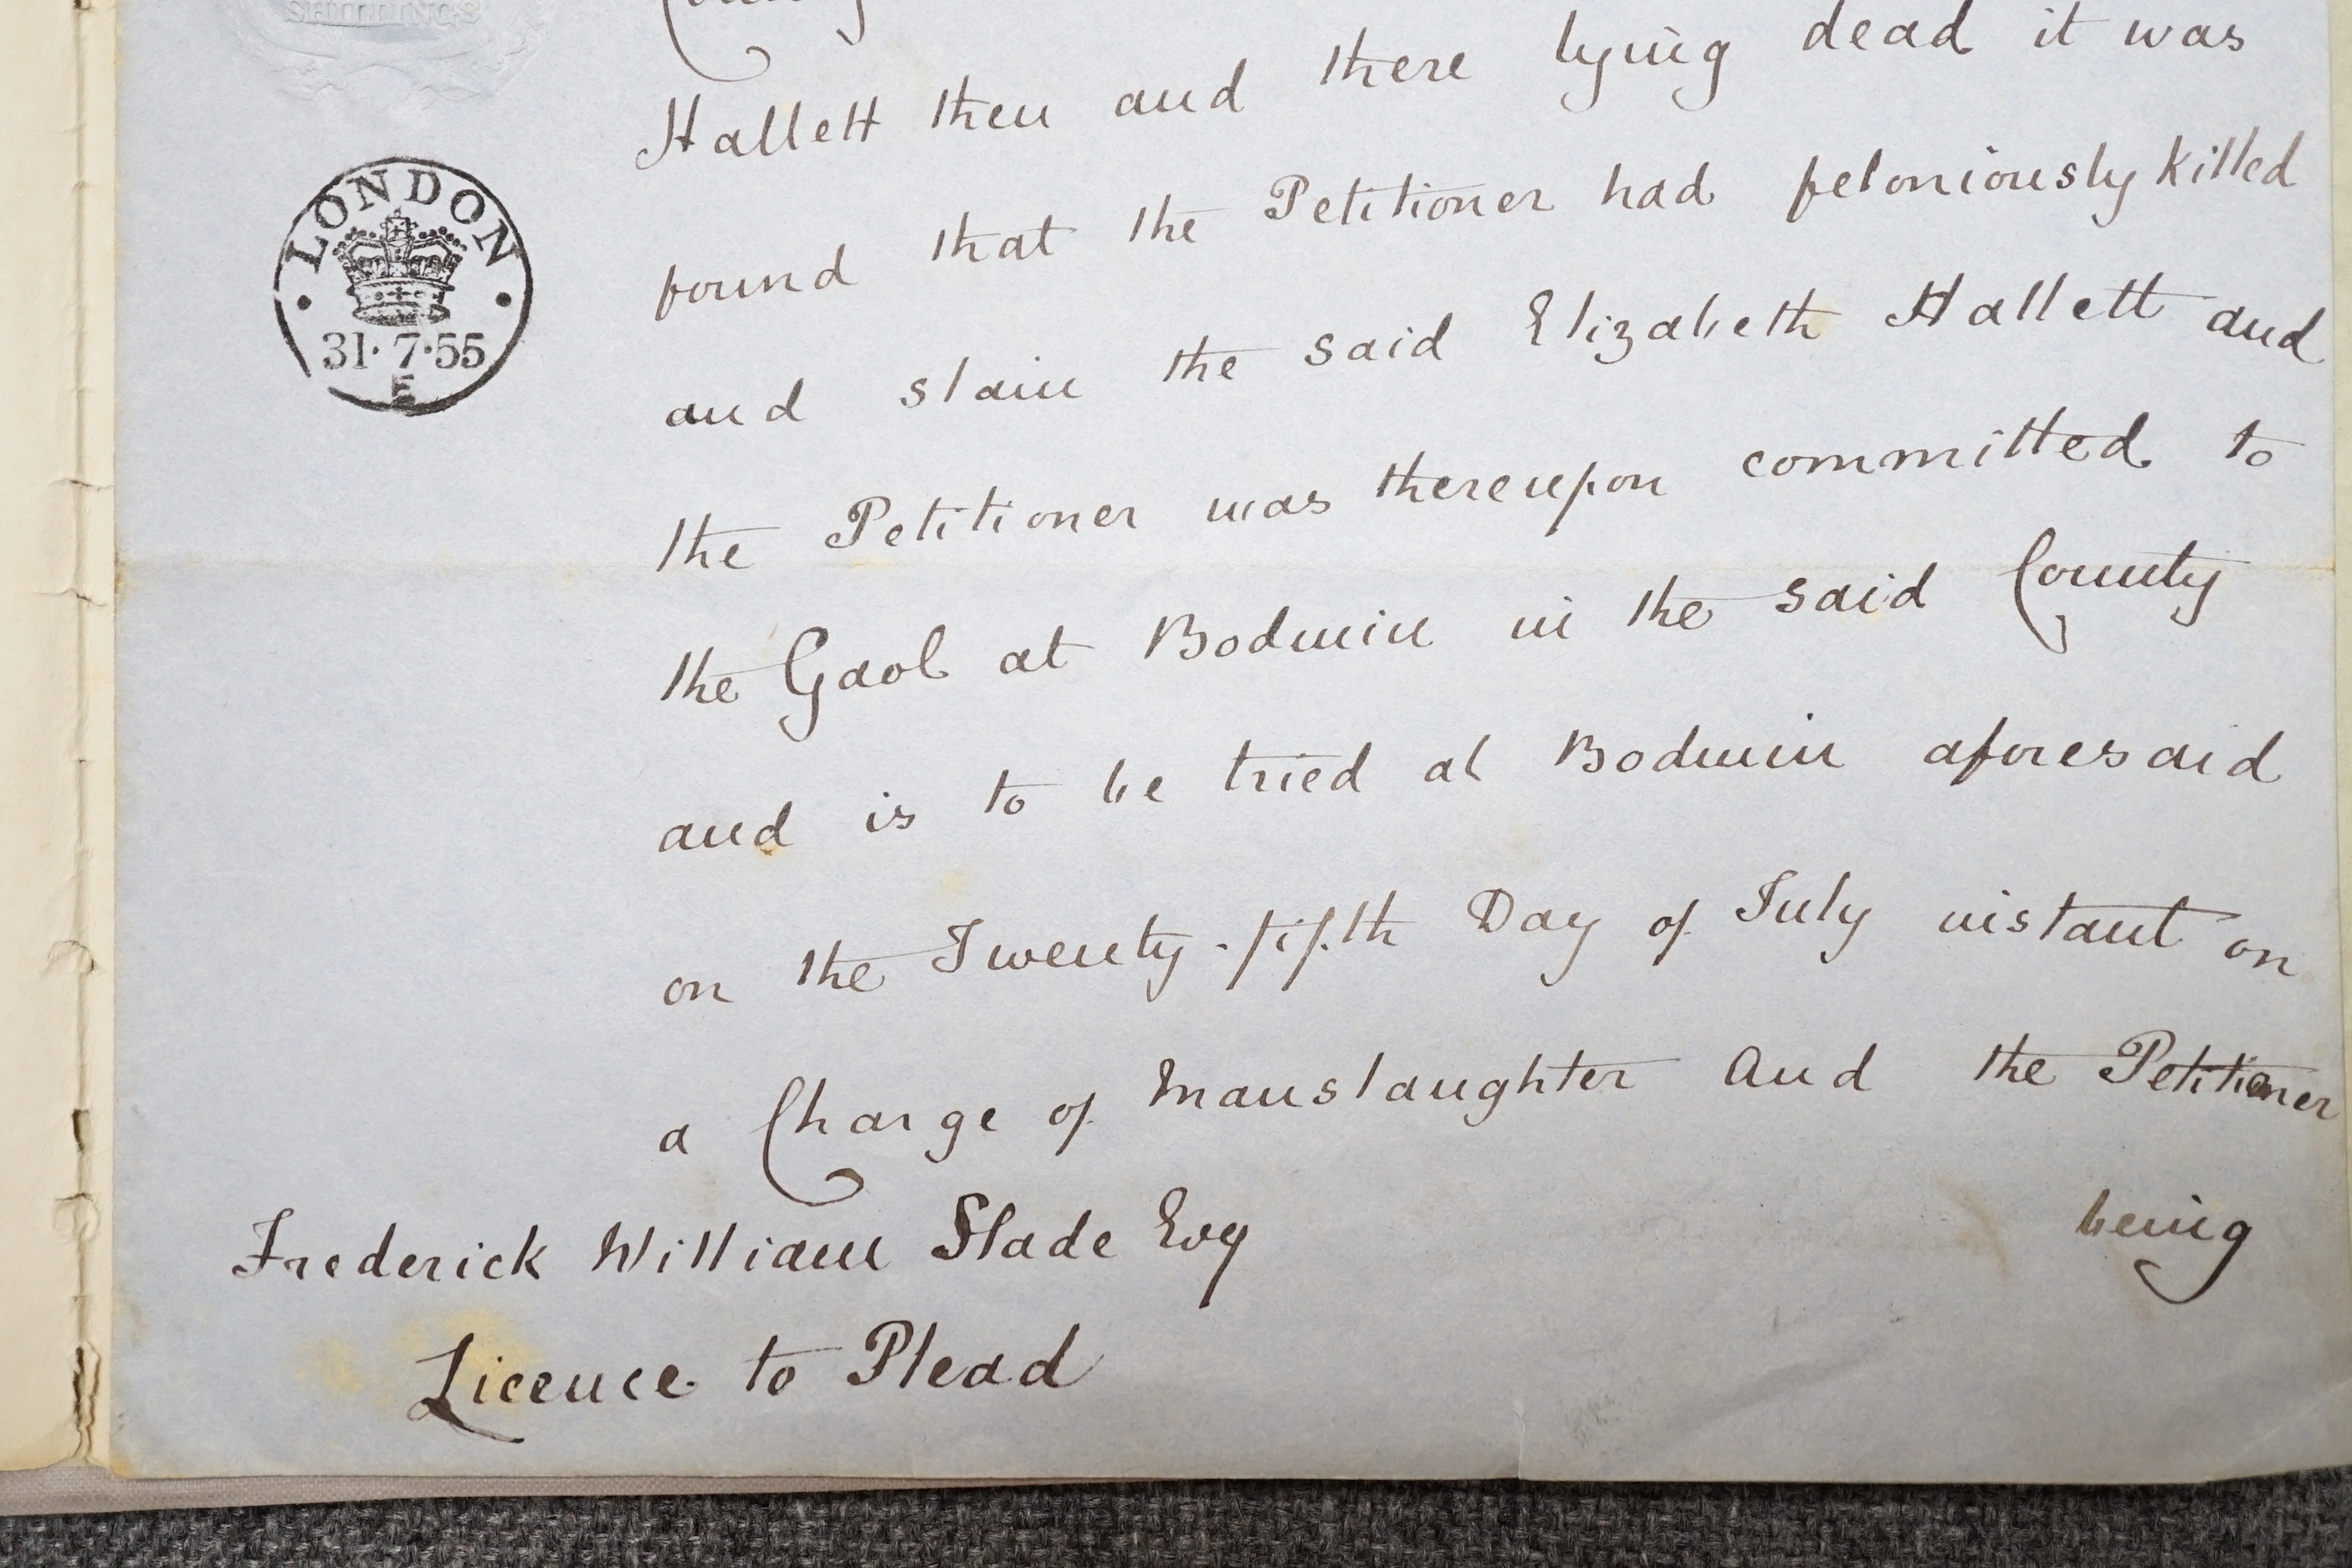 SHILLINGS
Hallett then and there lying dead it was
found that the Petitioner had feloniously killed
and slain the said Elizabeth Hallett and
the Petitioner was thereupon committed to
the Gaol at Bodmin in the said County
and is to be tried at Bodmin aforesaid
on the Twenty-fifth Day of July instant on
a Charge of Manslaughter And the Petitioner
being
LONDON
31·7·55
E
Frederick William Slade Esq
Licence to Plead